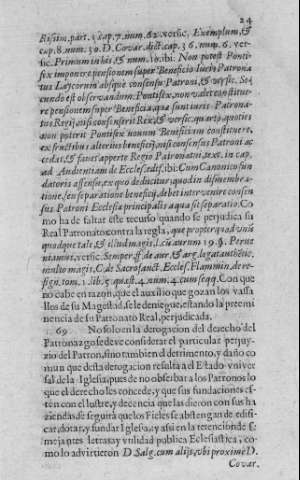 24
Ristm. part. 1. cap. 7. num. 62. versic. Exemplum, &
cap. 8. num. 30. D. Covar. dict. cap. 36. num. 6. ver-
sic. Primum in his & num. 10. ibi: Non potest Ponti-
fix imponere pensionem super Beneficio Iuris Patrona
tus Laycorum absque consensu Patroni, & versic. Se-
cundo est observandum: Pontifex non valet constitue-
re pensionem super Beneficia, qua sunt iuris Patrona-
tus Regij, nisi consensu Reix, & versic. quarto, quoties
non poterit Pontifex novum Beneficium constituere,
ex fructibus alterius beneficij, nisi consensus Patroni ac
cedat, & faves aperte Regio Patronatui, tex. in cap.
ad Audientiam de Eccles. ædif. ibi: Cum Canonico fun
datoris assensu, ex quo deducitur, quod in dismembra-
tione, seu separatione beneficij, debet intervenire consen
sus Patroni Ecclesia principalis a qua sit separatio. Co
mo ha de faltar este recurso quando se perjudica su
Real Patronato, contra la regla, que propter quod unum
quodque tale, & illud magis, l.
ntamur, versic. Semper, ff. de aur. & arg. legat. authētic.
multo magis, C. de Sacrosanct. Eccles. Flammin. de re-
sign. tom. 1. lib. 5. quæst. 4. num. 4. cum seqq. Con que
no cabe en razon, que el auxilio que gozan los vassa
llos de su Magestad, se le deniegue, estando la preemi
nencia de su Patronato Real, perjudicada.
69 No solo en la derogacion del derecho del
Patronazgo se deve considerar el particular perjuy-
zio del Patron, sino tambien el detrimento, y daño co
mun que desta derogacion resulta al Estado vniver
sal de la Iglesia, pues de no observar a los Patronos lo
que el derecho les concede, y que sus fundaciones es-
tèn con el lustre, y decencia que las dieron con sus ha
ziendas, de seguirà que los Fieles se abstengan de edifi-
car, dotar, y fundar Iglesias, y assi en la retencion de se
mejantes letras ay vtilidad publica Eclesiastica, co-
mo lo advirtieron D. Salg. cum alijs, vbi proxime D.
Covar.